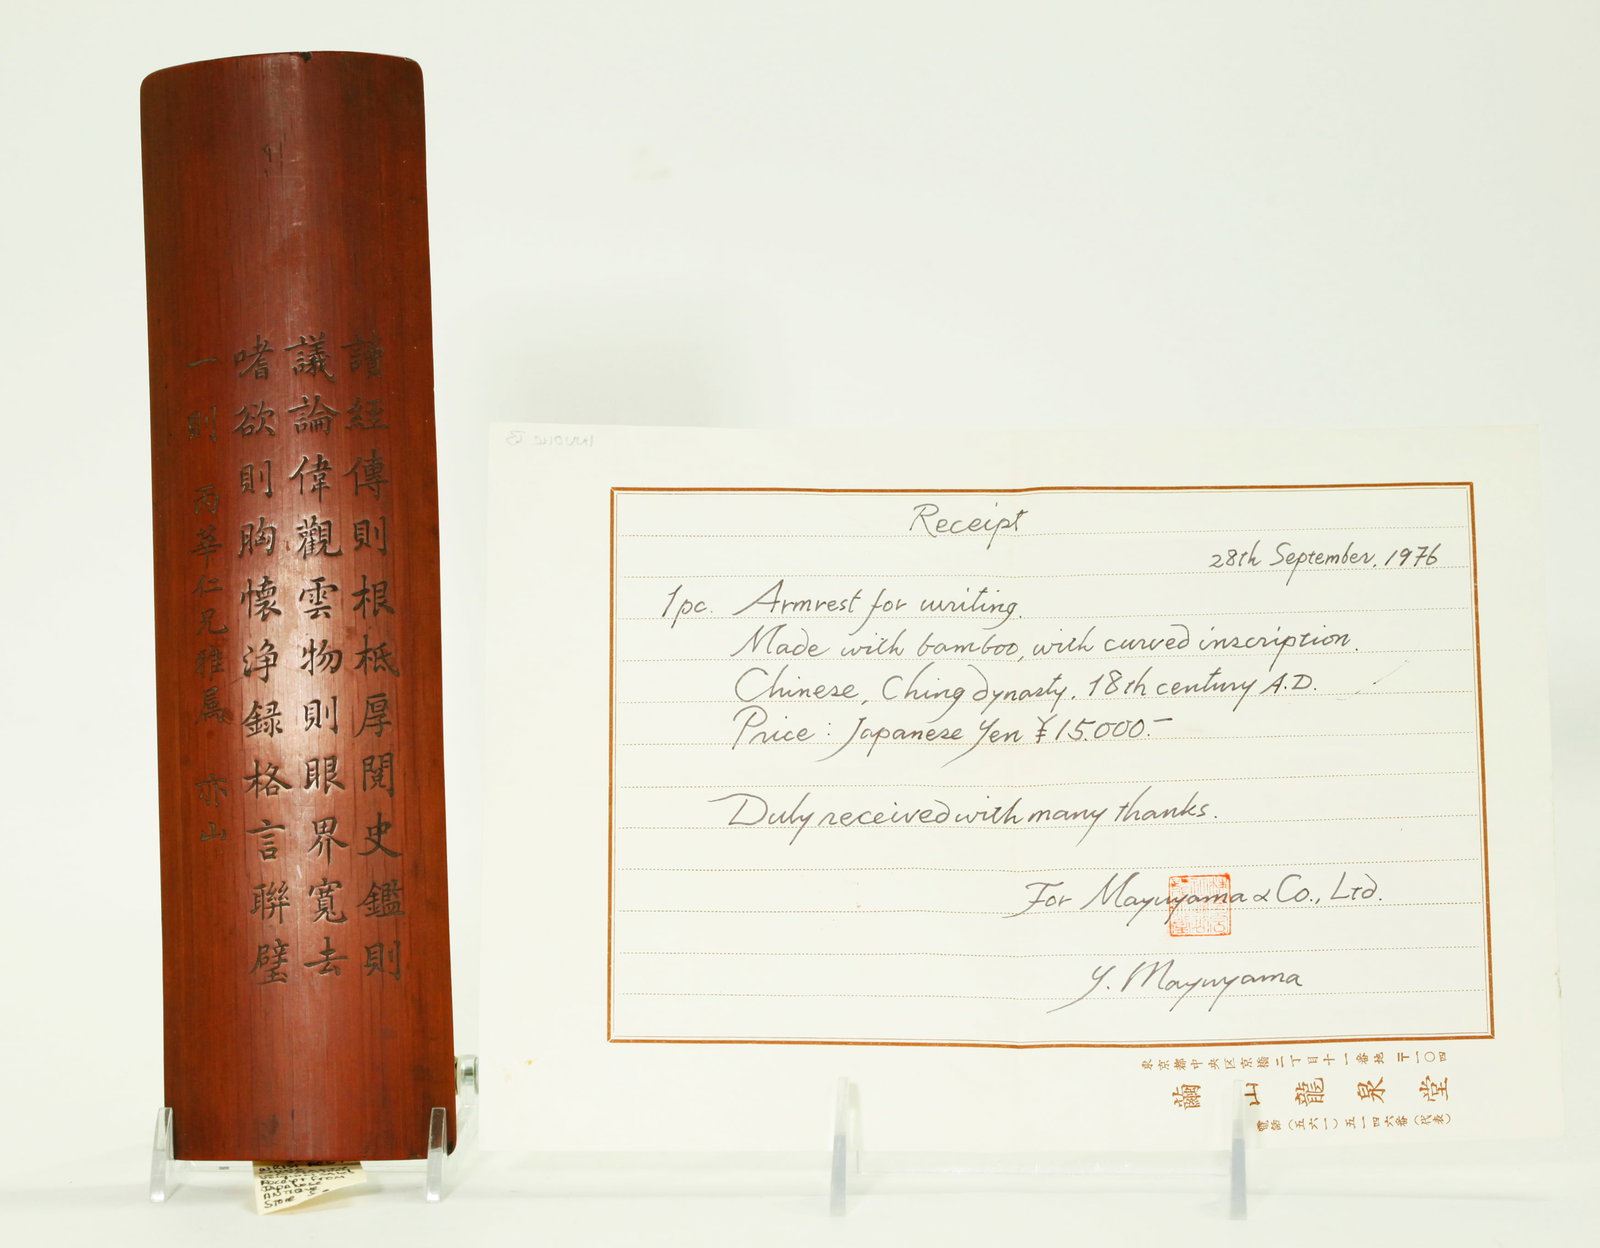 讀經傳則根柢厚閱史鑑則
議論偉觀雲物則眼界寬去
嗜欲則胸懷淨録格言聯璧
一則 丙華仁兄雅属 亦山
Receipt
28th September, 1976
1pc. Armrest for writing.
Made with bamboo, with curved inscription.
Chinese, Ching dynasty, 18th century A.D.
Price: Japanese Yen ¥15.000.-
Duly received with many thanks.
For Mayuyama & Co., Ltd.
Y. Mayuyama
東京都中央区京橋二丁目十一番地 〒一〇四
繭山龍泉堂
電話(五六一)五一四六番(代表)
RECEIPT FROM
JAPANESE
ANTIQUE
STORE